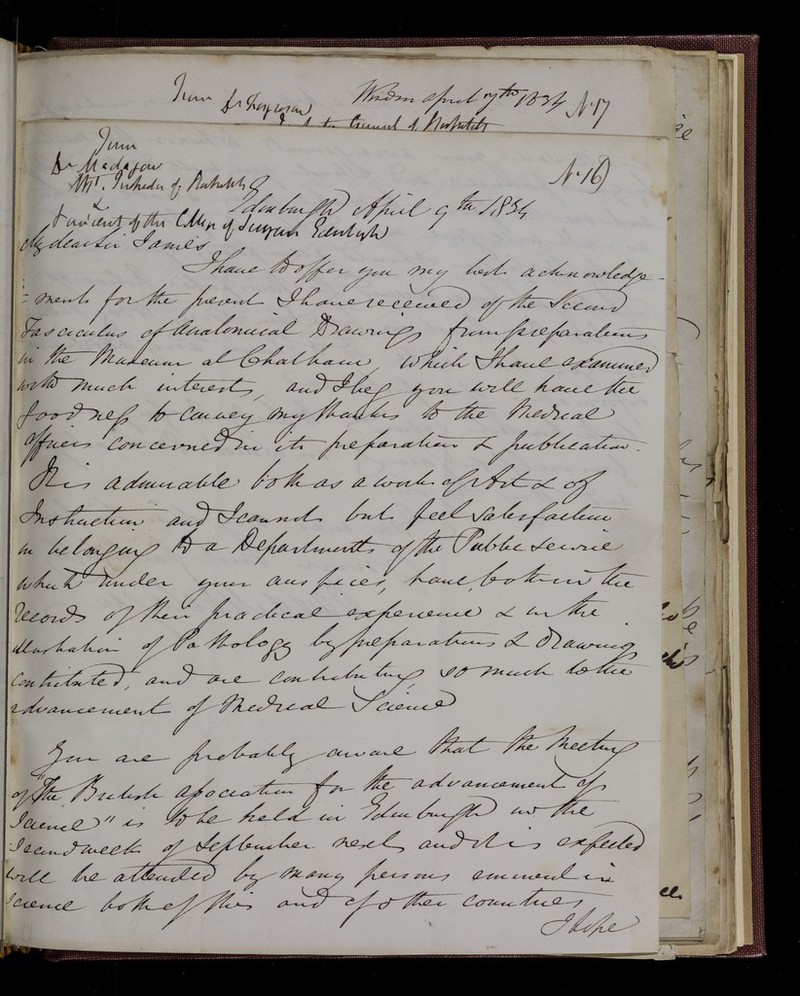 From
Dr
April 7th 1834 No 17
From
No 16)
Edinburgh April 9th 1834
My dear Sir James
I have to offer you my best acknowledge-
ments for the present I have received of the Second
Fasciculus of Anatomical Drawings from preparations
in the Museum at Chatham, which I have examined
with much interest, and I beg you will have the
goodness to convey my thanks to the Medical
officers concerned in its preparation & publication.
It is admirable both as a work of Art & of
Instruction and I cannot but feel satisfaction
in belonging to a Department of the Public service
which under your auspices, have, both in the
records of their practical experience & in the
illustration of Pathology by preparations & Drawings
contributed, and are contributing so much to the
advancement of Medical Science
You are probably aware that the Meeting
of "The British Association for the advancement of
Science" is to be held in Edinburgh in the
Second week of September next, and it is expected
will be attended by many persons eminent in
science both of this and of other countries
I hope